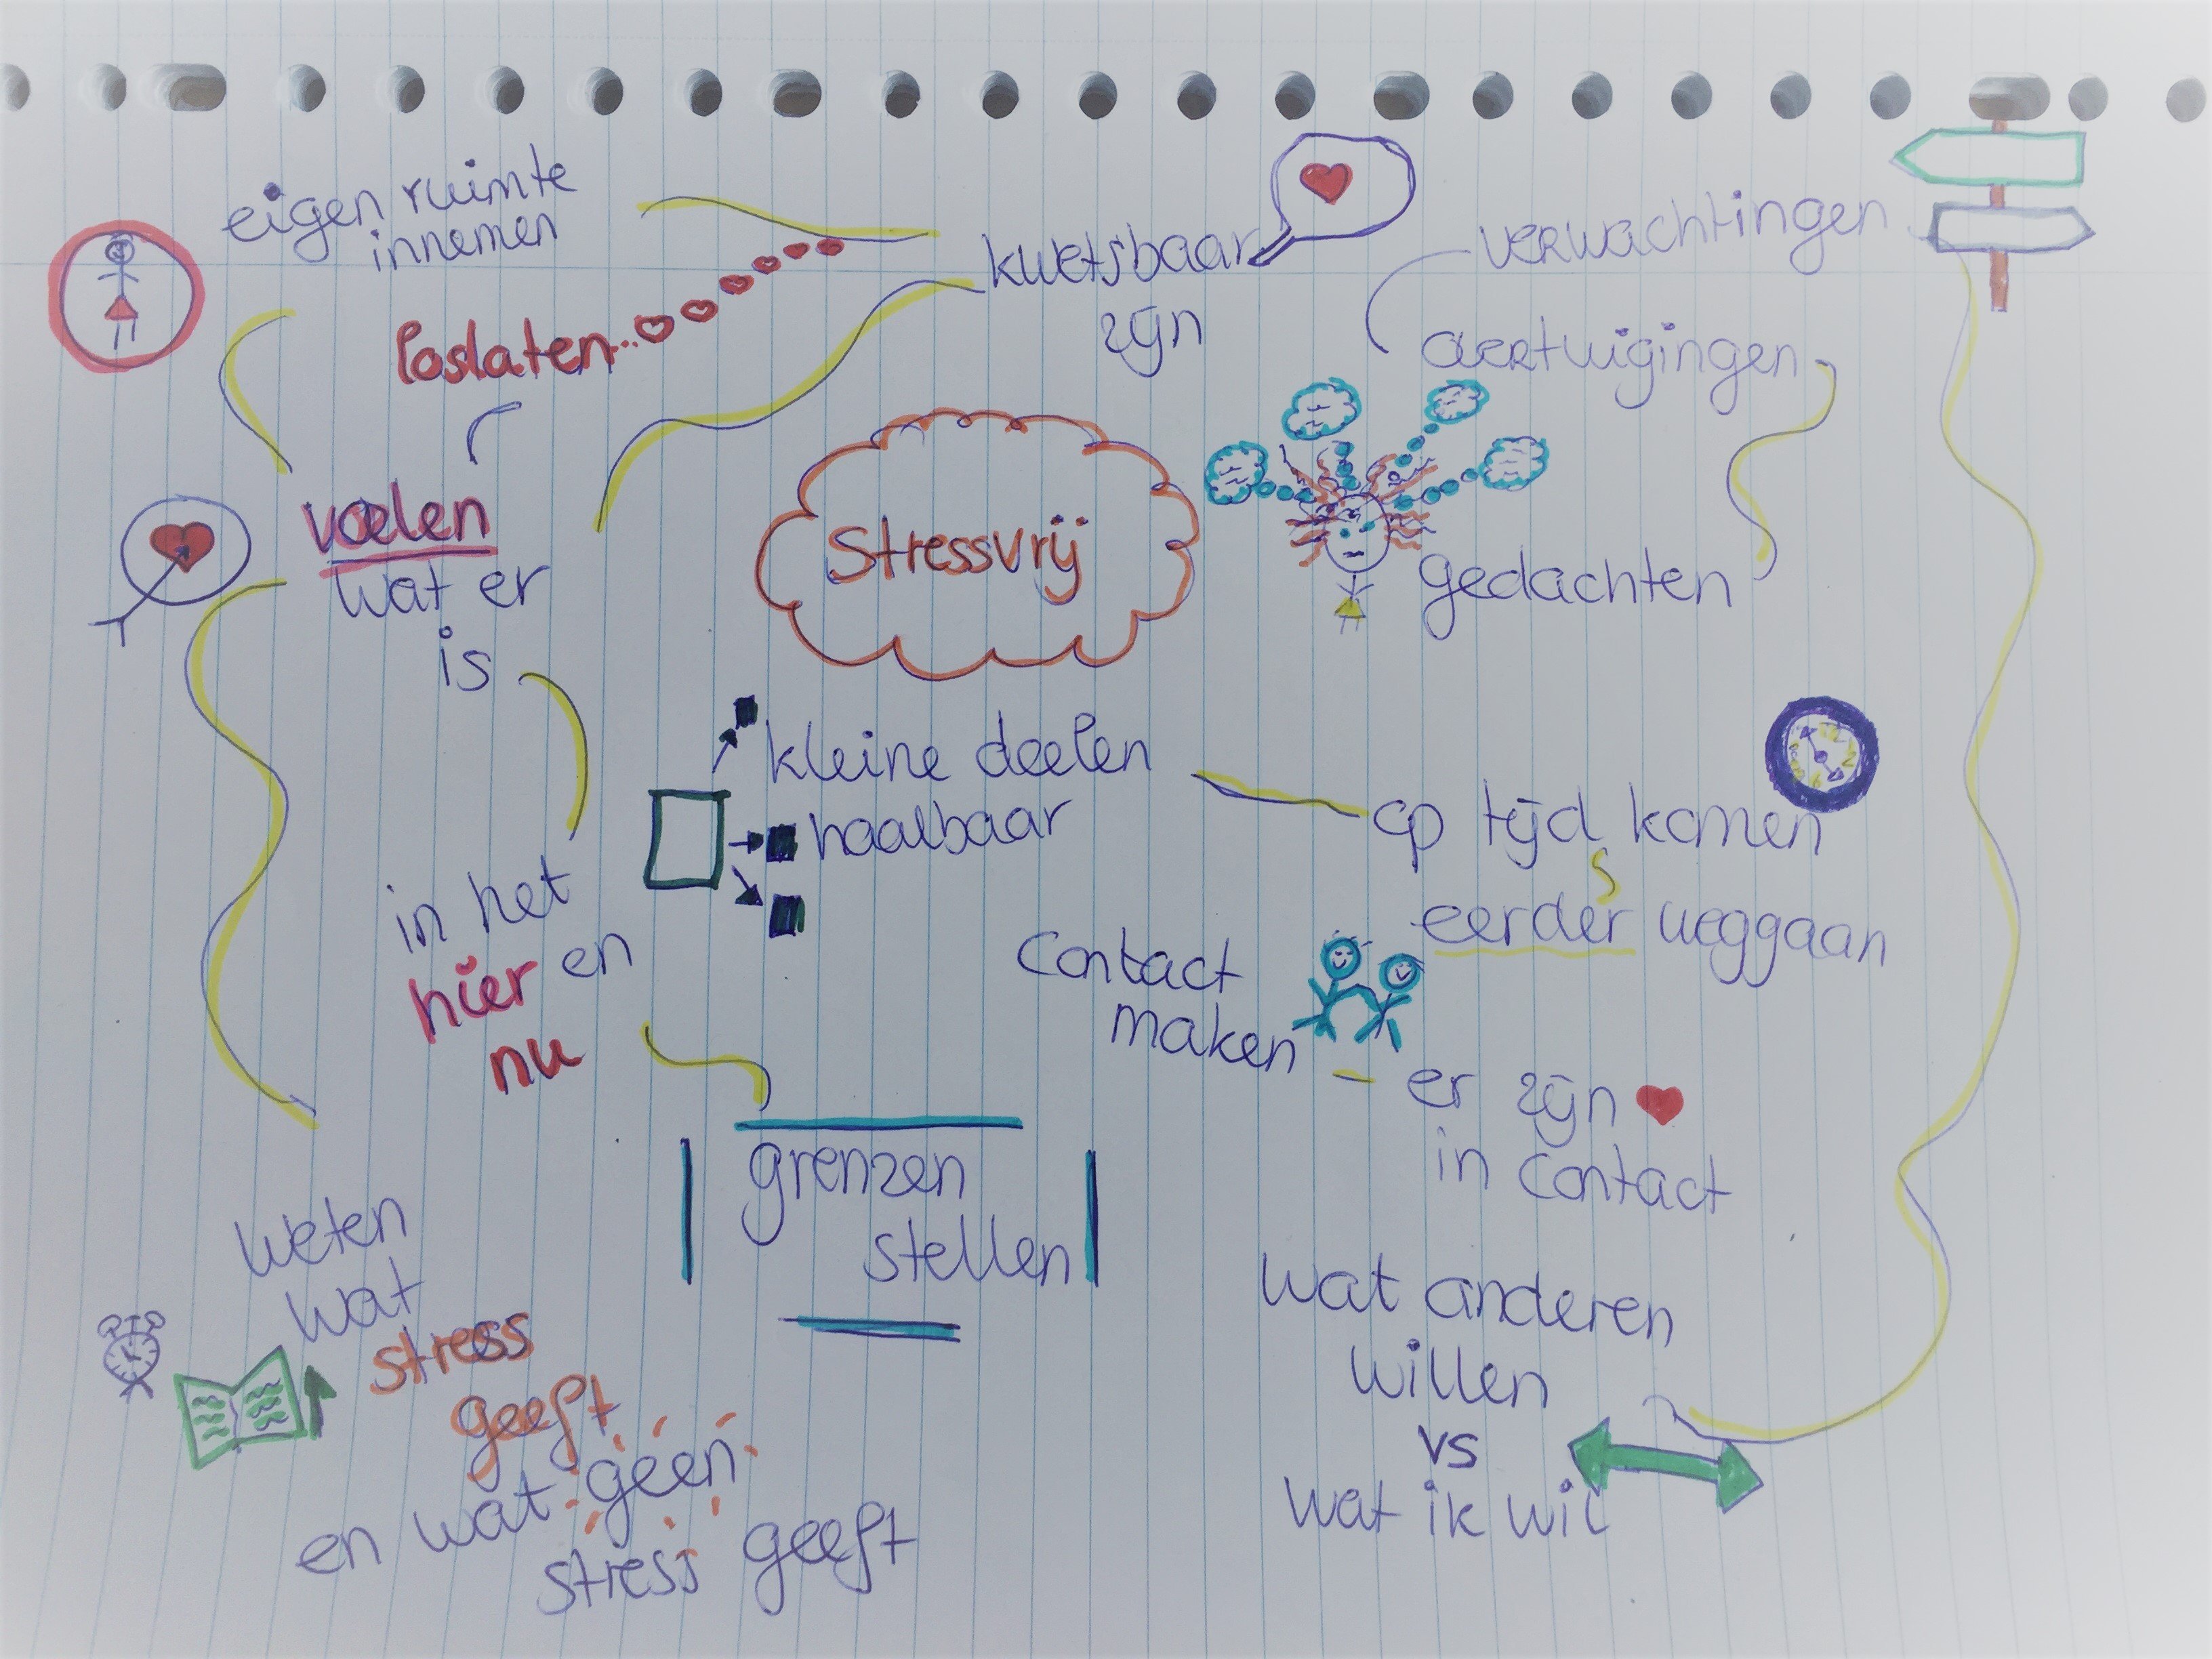 eigen ruimte
innemen
loslaten...
kwetsbaar
zijn
verwachtingen
overtuigingen
gedachten
Stressvrij
voelen
wat er
is
kleine doelen
haalbaar
op tijd komen
eerder weggaan
in het
hier en
nu
Contact
maken
er zijn
in contact
grenzen
stellen
weten
wat
stress
geeft
en wat geen
stress geeft
wat anderen
willen
vs
wat ik wil